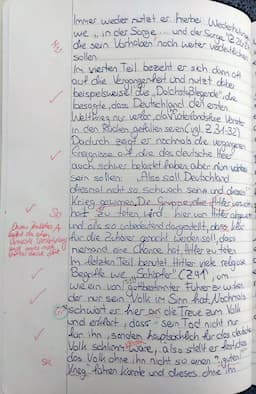 Immer wieder nutzt er hierbei Wiederholungen
wie „in der Sorge ... und der Sorge"
die sein Vorhaben noch weiter verdeutlichen
sollen.
Im vierten Teil bezieht er sich dann oft
auf die Vergangenheit und nutzt dabei
beispielsweise die „Dolchstoßlegende", die
besagte, dass Deutschland den ersten
Weltkrieg nur verlor, da
in den Rücken gefallen seien (vgl. Z. 31-32)
Dadurch zeigt er nochmals die vergangenen
Ereignisse auf, die das deutsche Heer
auch schwer belastet haben, aber nun vorbei
sein sollen: „Also soll Deutschland
diesmal nicht so schwach sein und diesen
Krieg gewinnen. Die Gruppe, die Hitler versucht
hat zu töten, wird hier von Hitler
und als so unbedeutend dargestellt, dass
für die Zuhörer gemacht werden soll, dass
niemand die Chance hat, Hitler zu töten.
Im letzten Teil benutzt Hitler viele religiöse
Begriffe wie „Schöpfer" (Z 41), um
wie ein von Gott bestimmter Führer zu wirken,
der nur sein Volk im Sinn hat. Nochmals
schwört er hier die Treue zum Volk
und erklärt, dass sein Tod nicht nur
für ihn, sondern hauptsächlich für das deutsche
Volk schlimm wäre, also stellt er fest, dass
das Volk ohne ihn nicht so einen „guten"
Krieg führen könnte und dieses ohne ihn